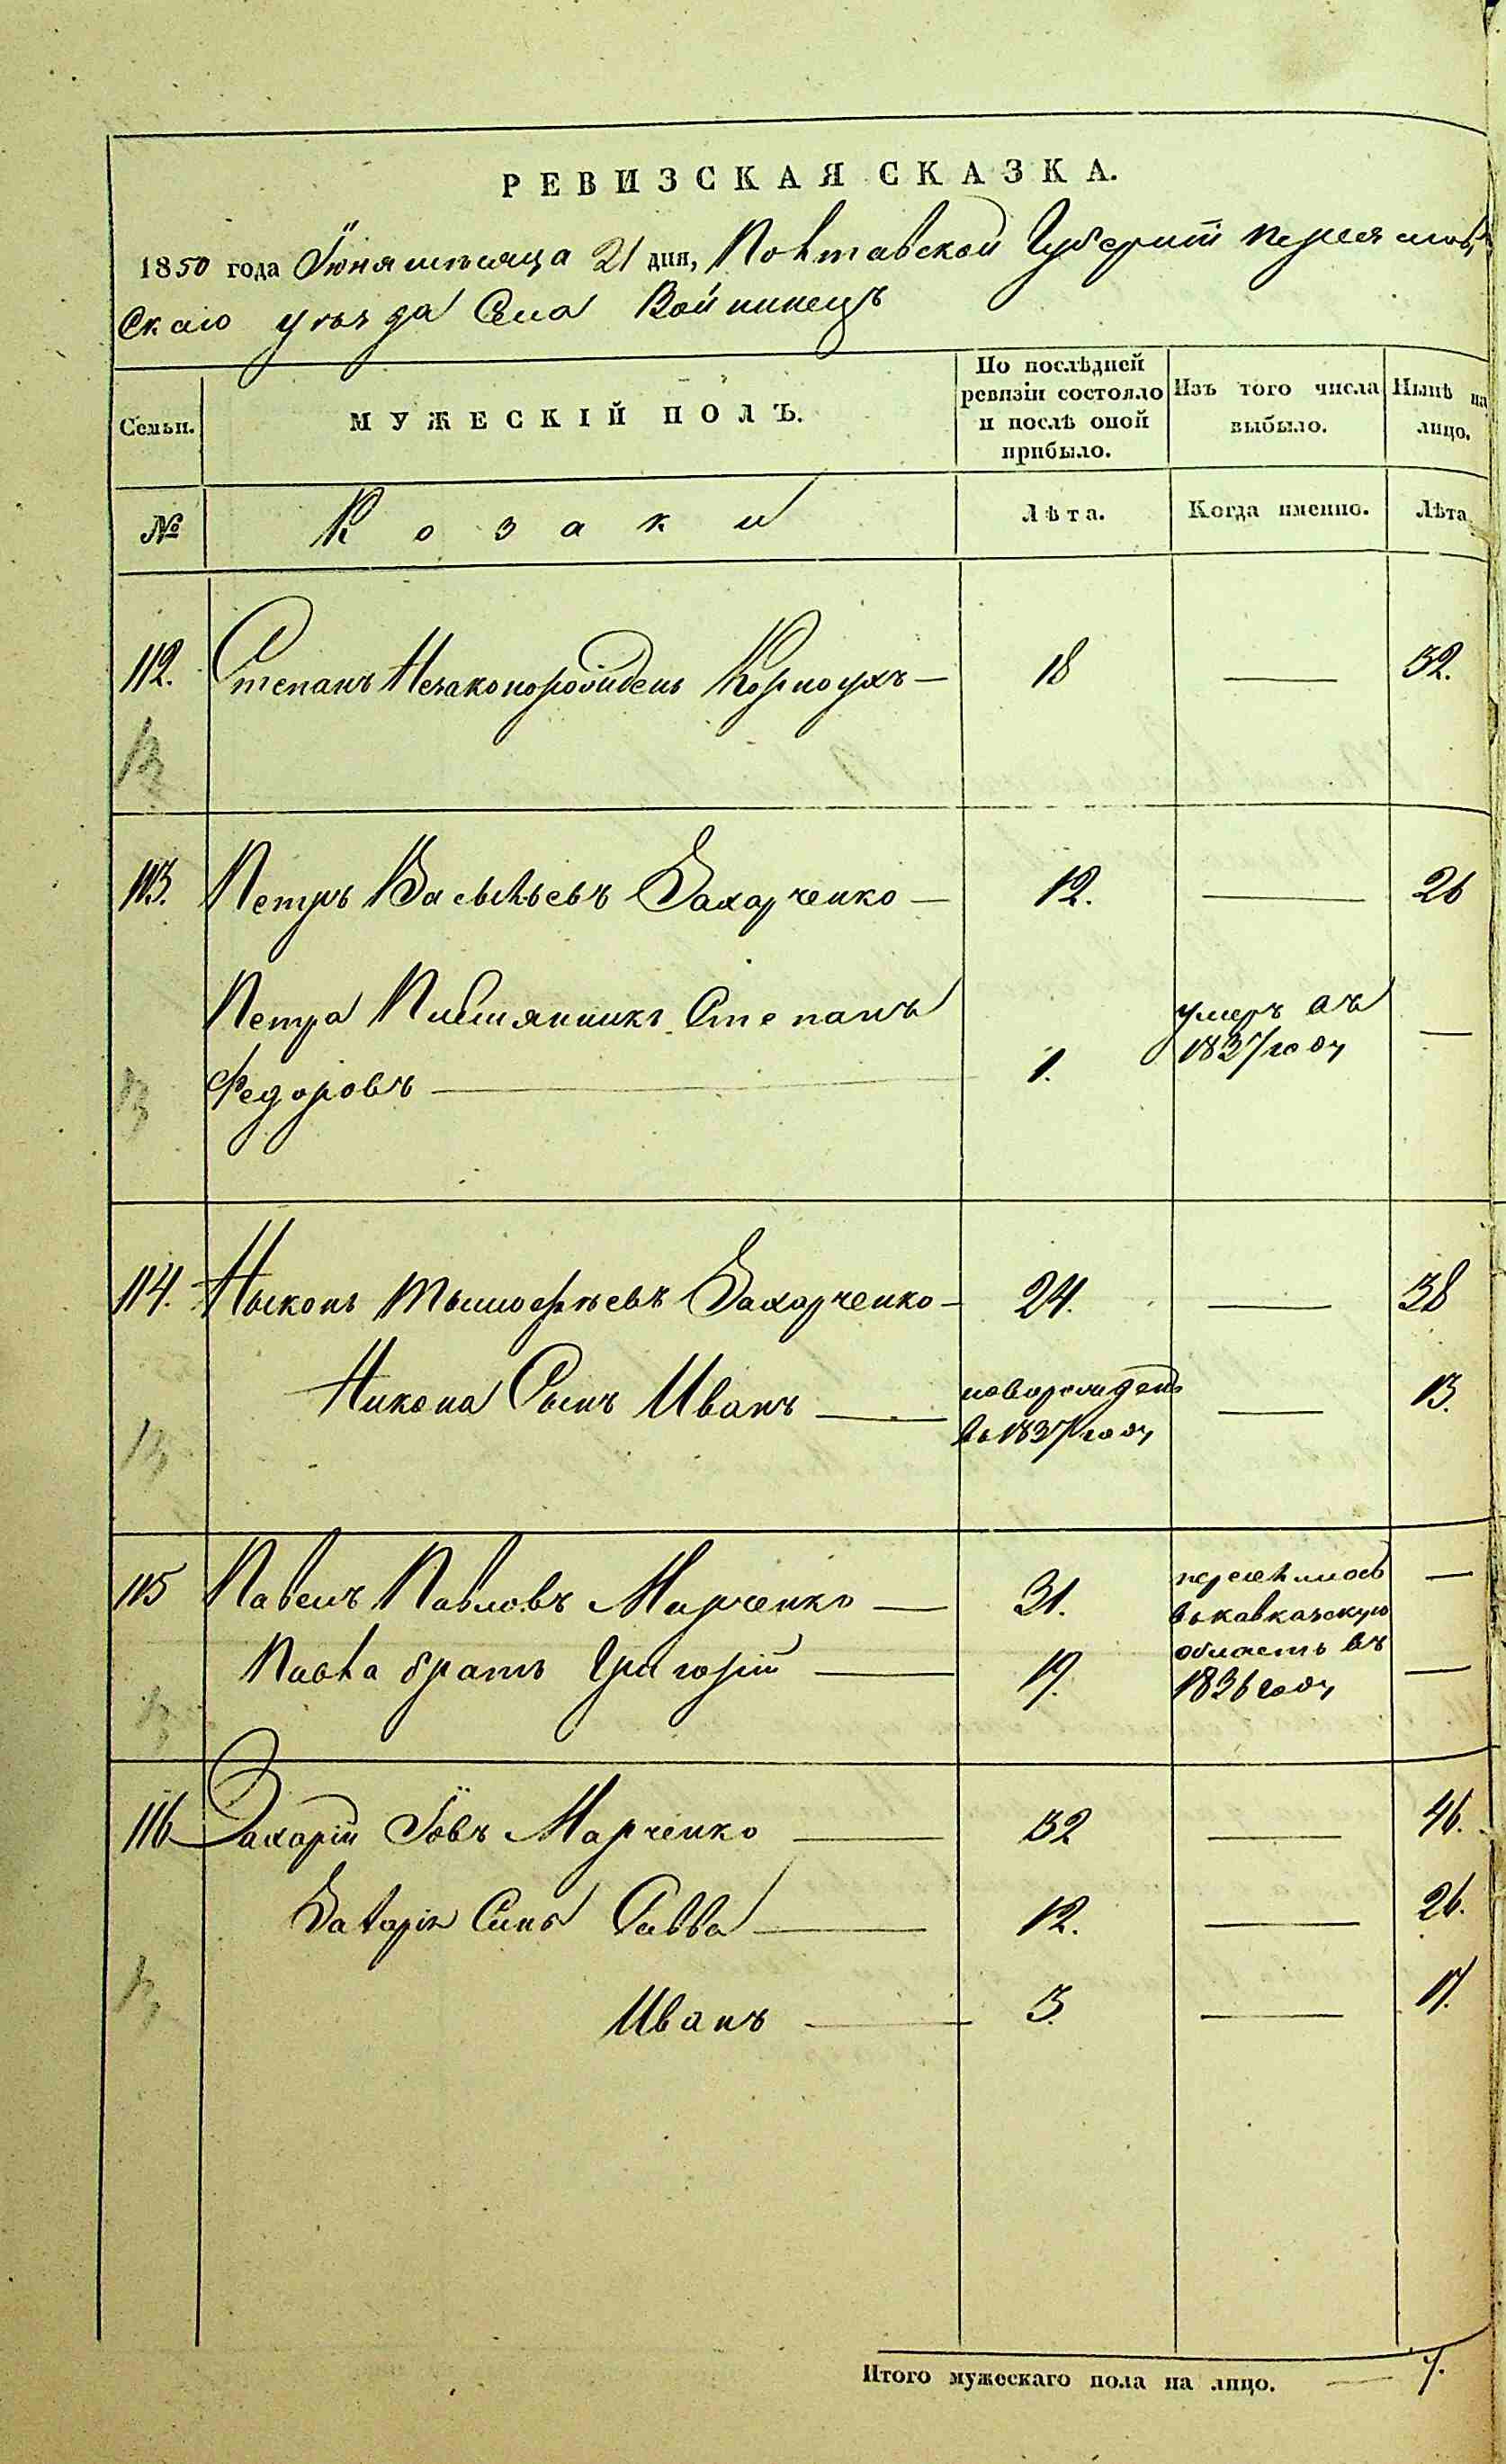 РЕВИЗСКАЯ СКАЗКА.
1850 года Іюня мѣсяца 21 дня, Полтавской Губерніи Переяслов
Скаго уѣзда Села Войнинецъ
Семьи.
МУЖЕСКІЙ ПОЛЪ.
По послѣдней ревизіи состояло и послѣ оной прибыло.
Изъ того числа выбыло.
Нынѣ на лицо.
№
Козаки
Лѣта.
Когда именно.
Лѣта
112. Степанъ Незаконорожденъ Корноухъ — 18 — 32.
113. Петръ Васильевъ Захарченко — 12. — 26
Петра Степанъ умеръ въ
Федоровъ — 1. 1837 году —
114. Ныконъ Тымофѣевъ Захарченко — 24. — 38
Никона Сынъ Иванъ — новорожденъ — 13.
въ 1837 году
115 Павелъ Павловъ Марченко — 31. переселились —
въ кавказскую
Павла братъ Григорій — 19. область въ —
1836 году
116 Захарій Іовъ Марченко — 32 — 46.
Захарія Сынъ Савва — 12. — 26.
Иванъ — 3. — 17.
Итого мужескаго пола на лицо. — 7.